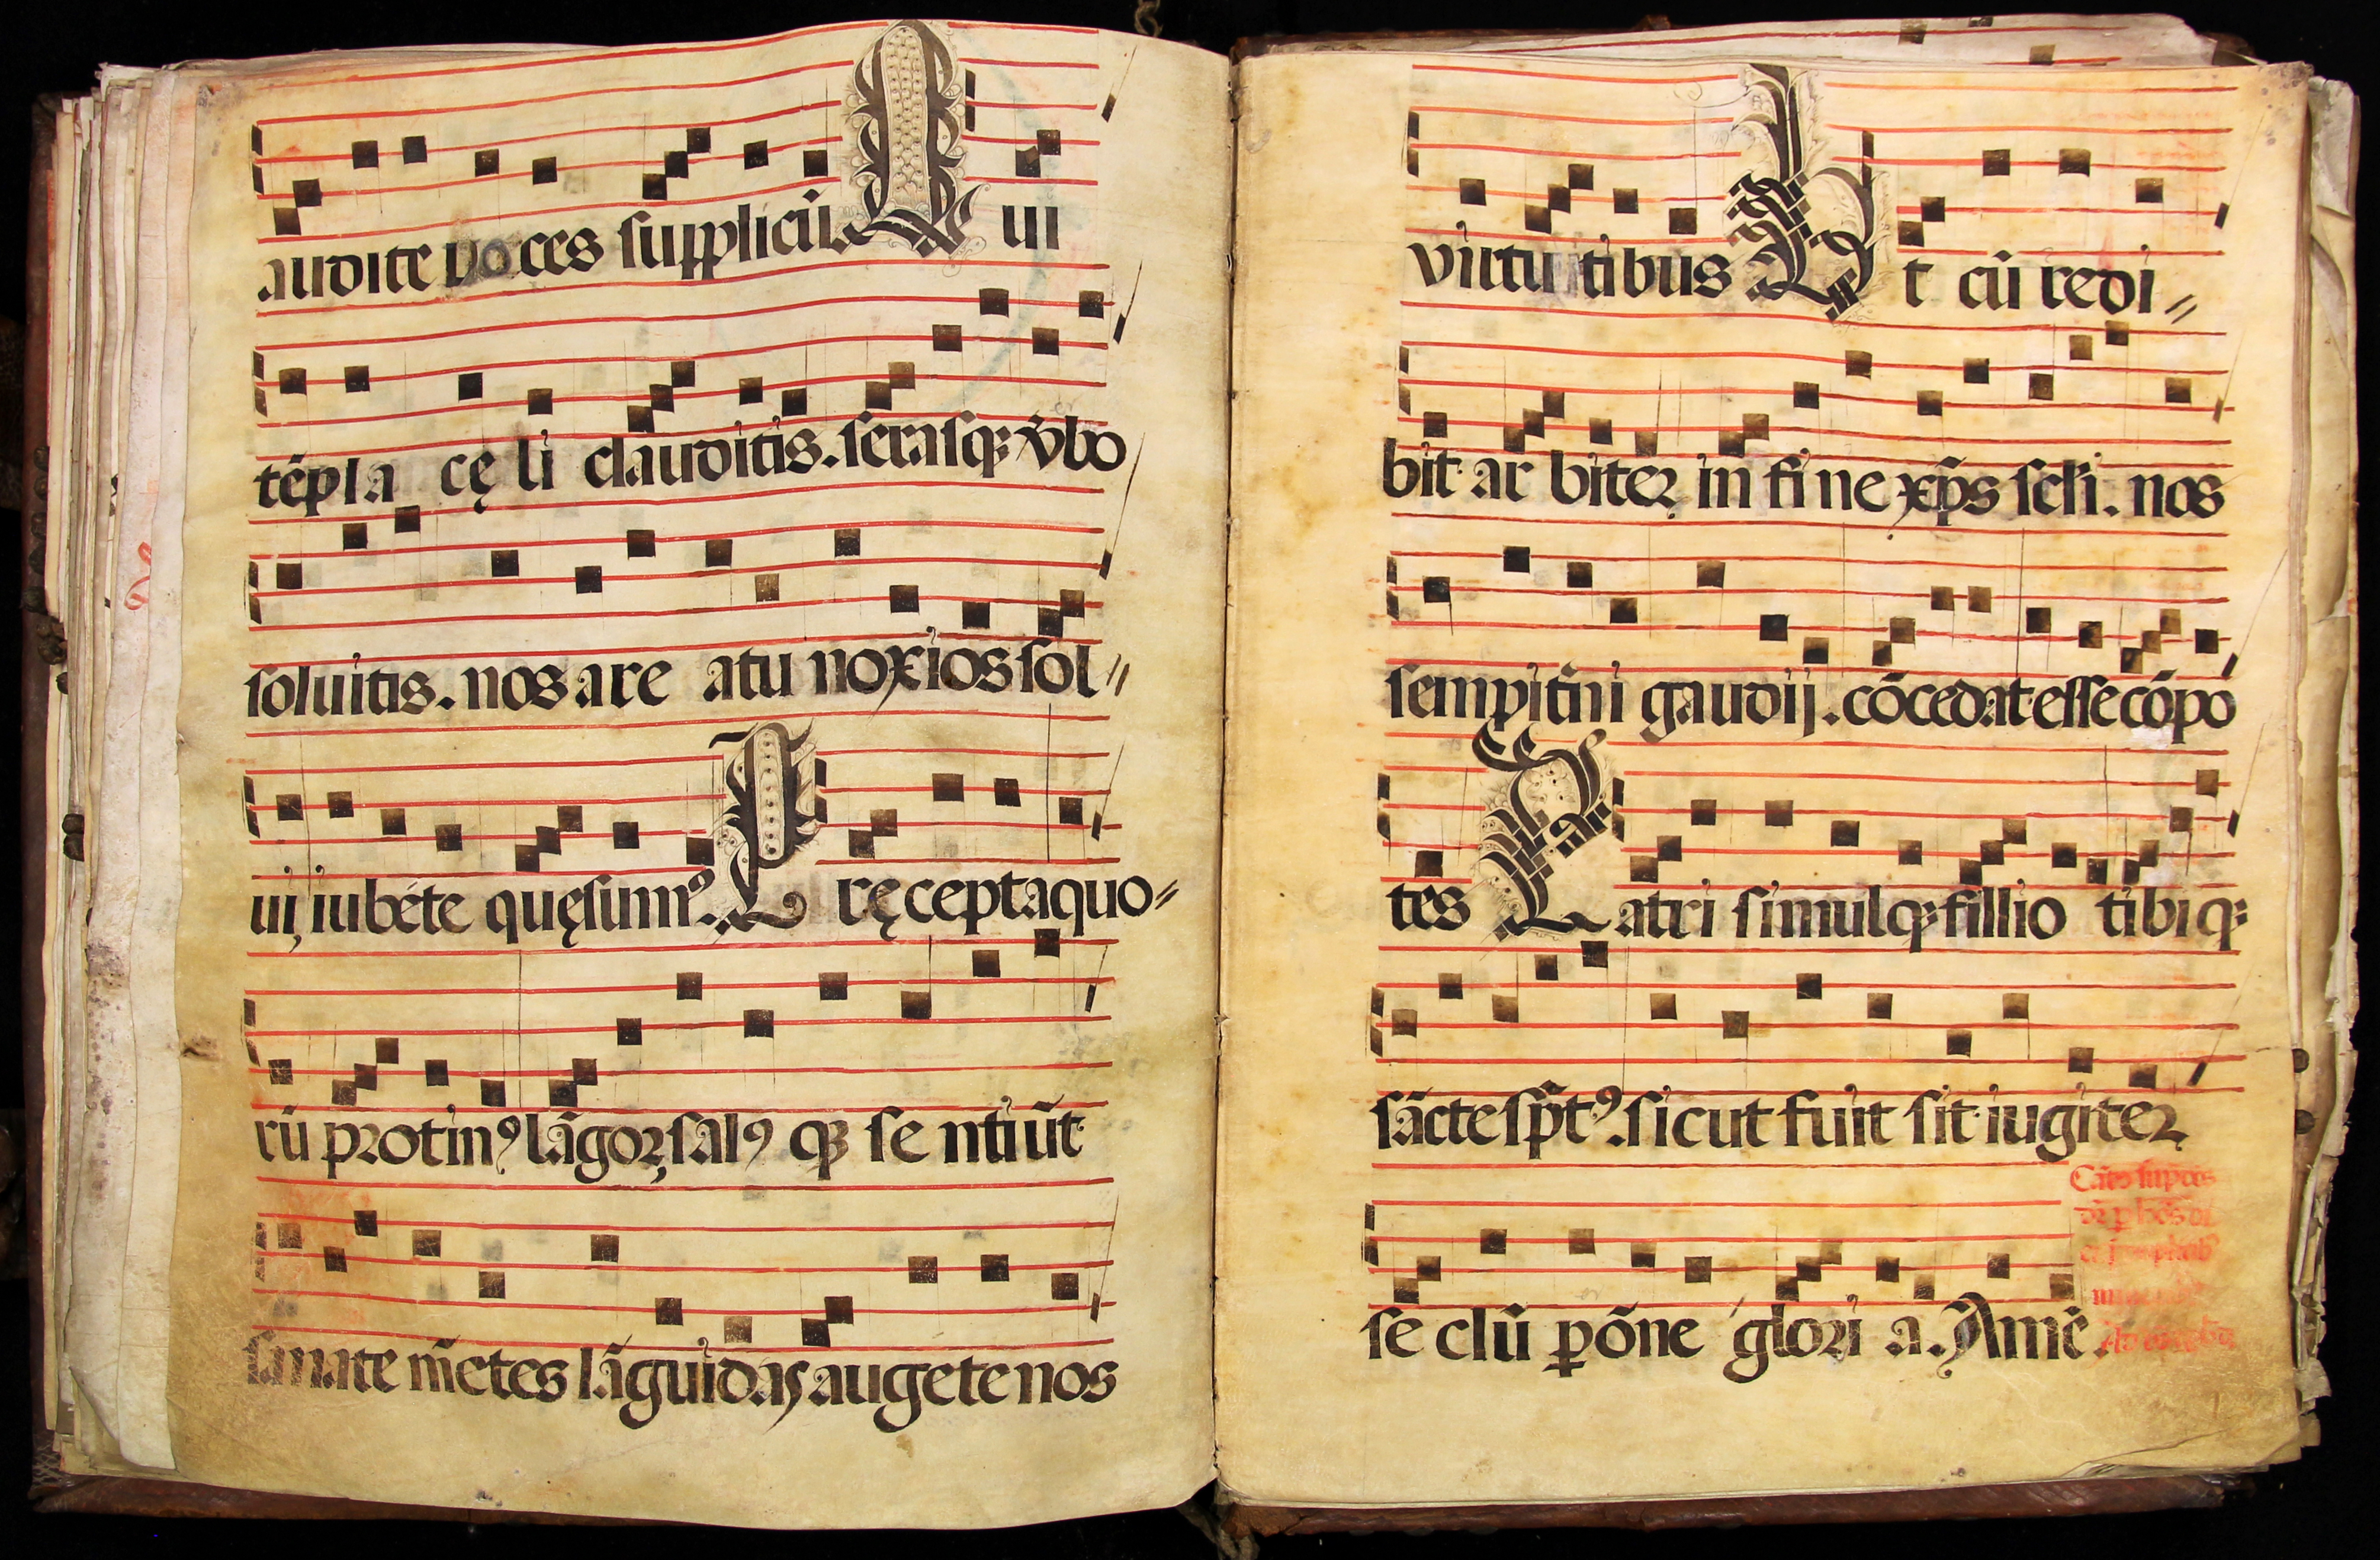 audite voces supplicū. Qui
tēpla cęli clauditis. serasq; v̄bo
soluitis. nos a reatu noxios sol〃
ui, iubēte quęsumꝰ. Pręcepta quo〃
rū protinꝰ lāgor, salꝰ qꝫ sentiūt
sanate m̄etes lāguidas augete nos
virtutibus Et cū redi〃
bit arbiter, in fine xp̄s scłi. nos
sempit̄ni gaudij. cōcedat esse cōpo
tēs Patri simulq; fillio tibiq;
sācte sp̄tꝰ. sicut fuit sit iugiter,
seclū ꝑ ōne gloria. Amē.